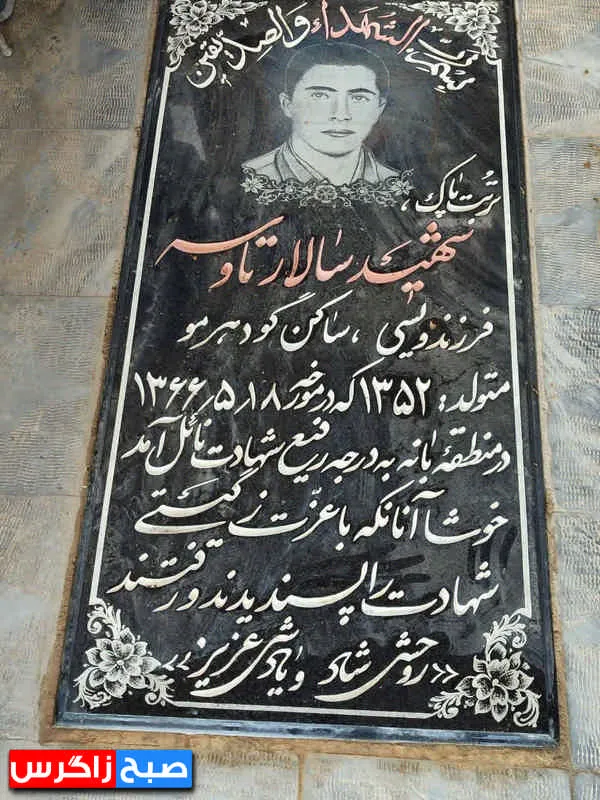 الشهداء والصدیقین
تربت پاک،
شهید سالار تاوسه
فرزند ویسی، ساکن گودهرمو
متولد: ۱۳۵۲ که در مورخه ۱۳۶۶٫۵٫۱۸
در منطقهٔ بانه به درجه رفیع شهادت نائل آمد
خوشا آنانکه با عزّت ز گیتی
شهادت را پسندیدند و رفتند
«روحش شاد و یادش عزیز»
صبح زاگرس